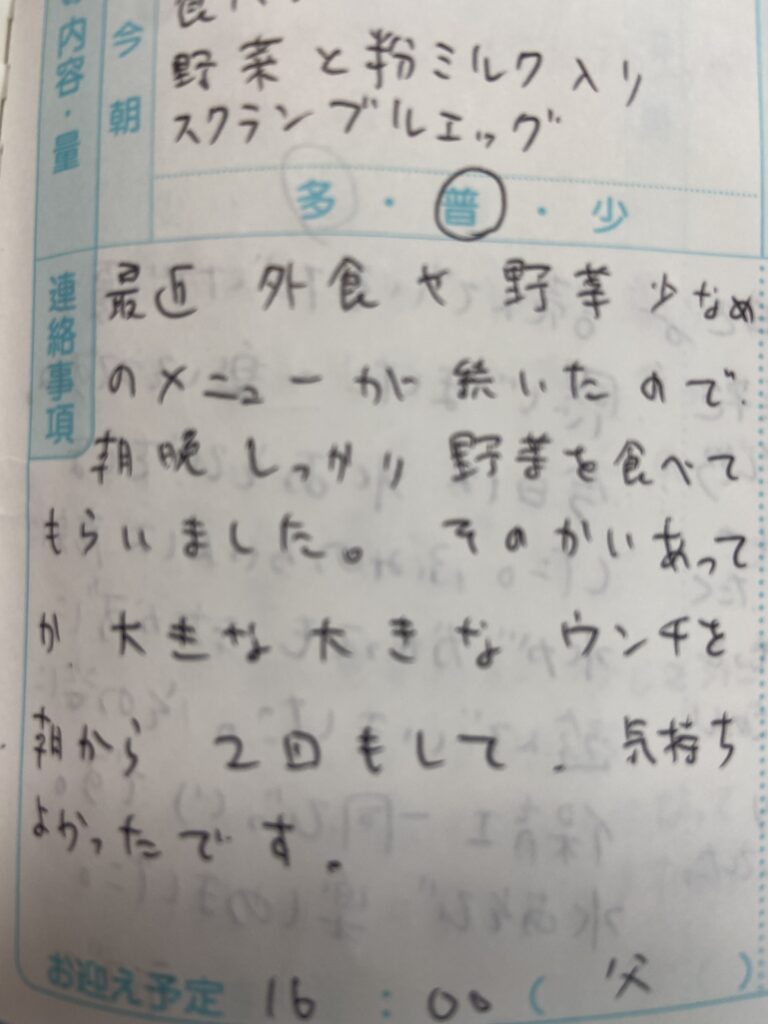 内容・量
今朝
野菜と粉ミルク入り
スクランブルエッグ
多・普・少
連絡事項
最近 外食や野菜少なめ
のメニューが続いたので
朝晩しっかり野菜を食べて
もらいました。そのかいあって
か大きな大きなウンチを
朝から2回もして、気持ち
よかったです。
お迎え予定 16:00(父)